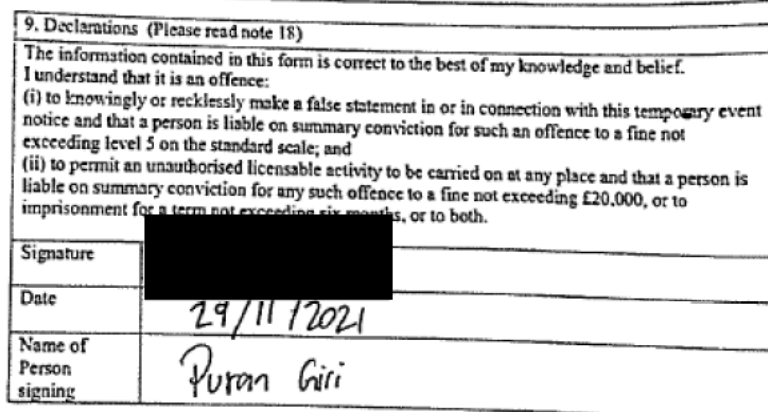 9. Declarations (Please read note 18)
The information contained in this form is correct to the best of my knowledge and belief.
I understand that it is an offence:
(i) to knowingly or recklessly make a false statement in or in connection with this temporary event
notice and that a person is liable on summary conviction for such an offence to a fine not
exceeding level 5 on the standard scale; and
(ii) to permit an unauthorised licensable activity to be carried on at any place and that a person is
liable on summary conviction for any such offence to a fine not exceeding £20,000, or to
imprisonment for a term not exceeding six months, or to both.
Signature
Date 29/11/2021
Name of
Person Puran Giri
signing